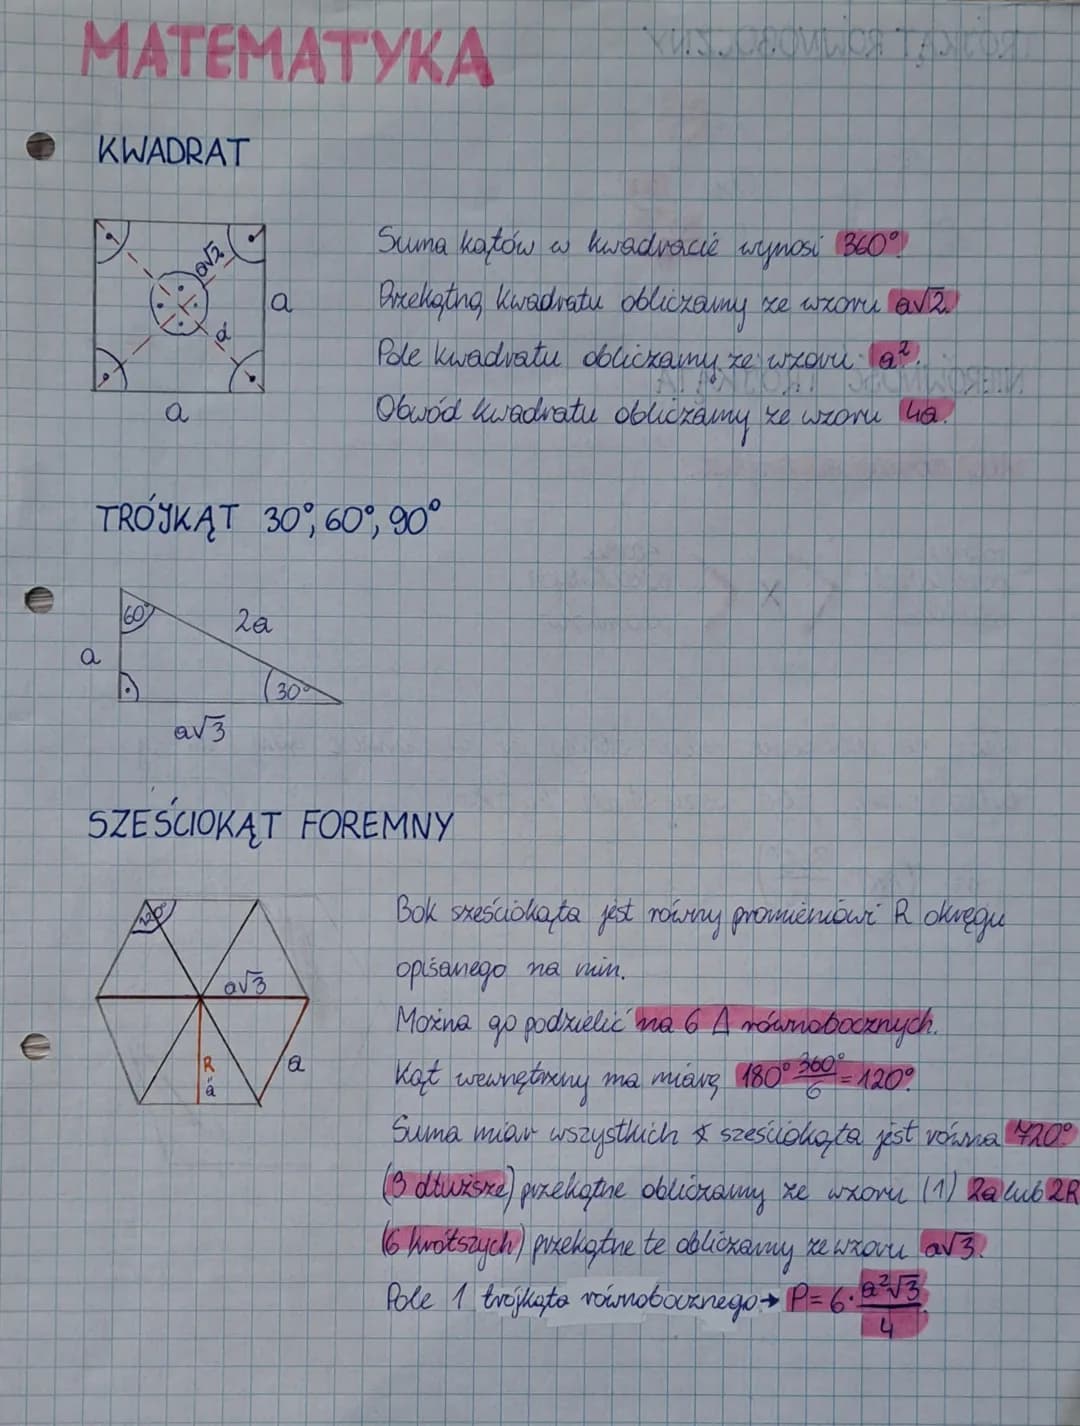 MATEMATYKA
KWADRAT
a√2
a
a
a
Suma kątów w kwadracie wynosi 360°.
Przekątną kwadratu obliczamy ze wzoru a√2.
Pole kwadratu obliczamy ze wzoru a².
Obwód kwadratu obliczamy ze wzoru 4a.
TRÓJKĄT 30°, 60°, 90°
60°
2a
a
30°
a√3
SZEŚCIOKĄT FOREMNY
120°
a√3
R
a
a
Bok sześciokąta jest równy promieniowi R okręgu
opisanego na nim.
Można go podzielić na 6 Δ równobocznych.
Kąt wewnętrzny ma miarę 180° 360°/6 = 120°.
Suma miar wszystkich ∢ sześciokąta jest równa 720°
(3 dłuższe) przekątne obliczamy ze wzoru (1) 2a lub 2R
(6 krótszych) przekątne te obliczamy ze wzoru a√3.
Pole 1 trójkąta równobocznego → P = 6 · a²√3/4.